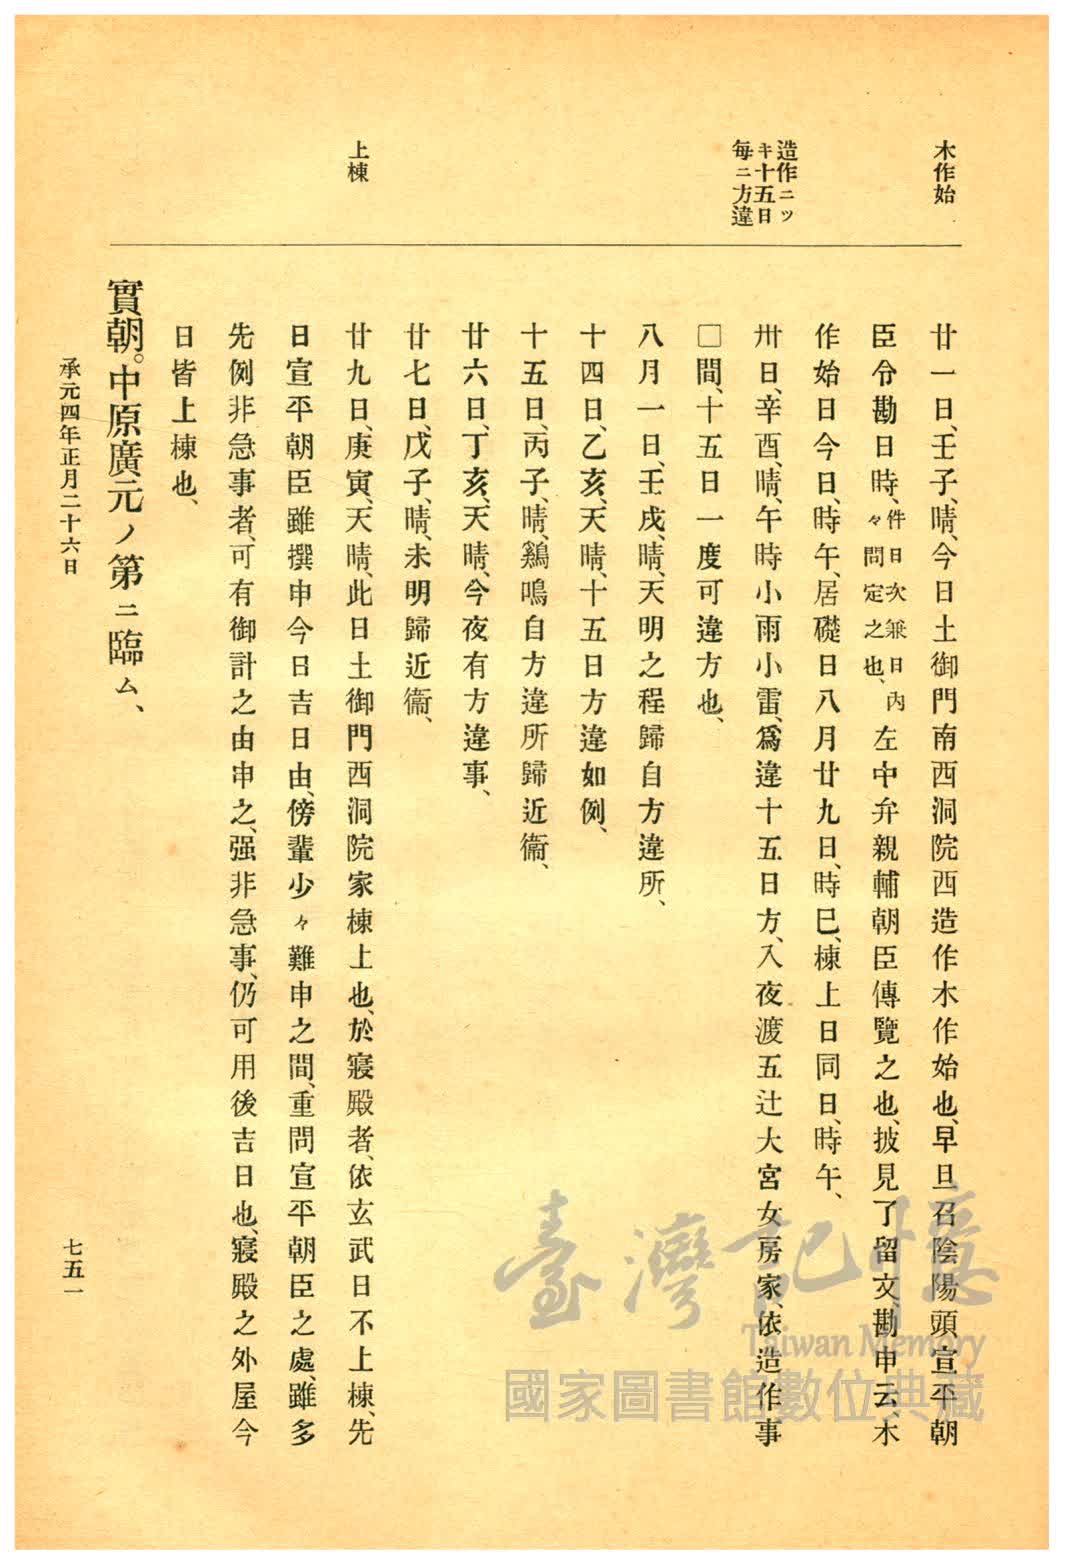 木作始
造作ニツ
キ十五日
毎ニ方違
上棟
廿一日、壬子、晴、今日土御門南西洞院西造作木作始也、早旦召陰陽頭宣平朝
臣令勘日時、件日次兼日内々問定之也、左中弁親輔朝臣傳覽之也、披見了留文、勘申云、木
作始日今日、時午、居礎日八月廿九日、時巳、棟上日同日、時午、
卅日、辛酉、晴、午時小雨小雷、爲違十五日方、入夜渡五辻大宮女房家、依造作事
□間、十五日一度可違方也、
八月一日、壬戌、晴、天明之程歸自方違所、
十四日、乙亥、天晴、十五日方違如例、
十五日、丙子、晴、鷄鳴自方違所歸近衞、
廿六日、丁亥、天晴、今夜有方違事、
廿七日、戊子、晴、未明歸近衞、
廿九日、庚寅、天晴、此日土御門西洞院家棟上也、於寢殿者、依玄武日不上棟、先
日宣平朝臣雖撰申今日吉日由、傍輩少々難申之間、重問宣平朝臣之處、雖多
先例非急事者、可有御計之由申之、强非急事、仍可用後吉日也、寢殿之外屋今
日皆上棟也、
實朝。中原廣元ノ第ニ臨ム、
承元四年正月二十六日
七五一
臺灣記憶
Taiwan Memory
國家圖書館數位典藏